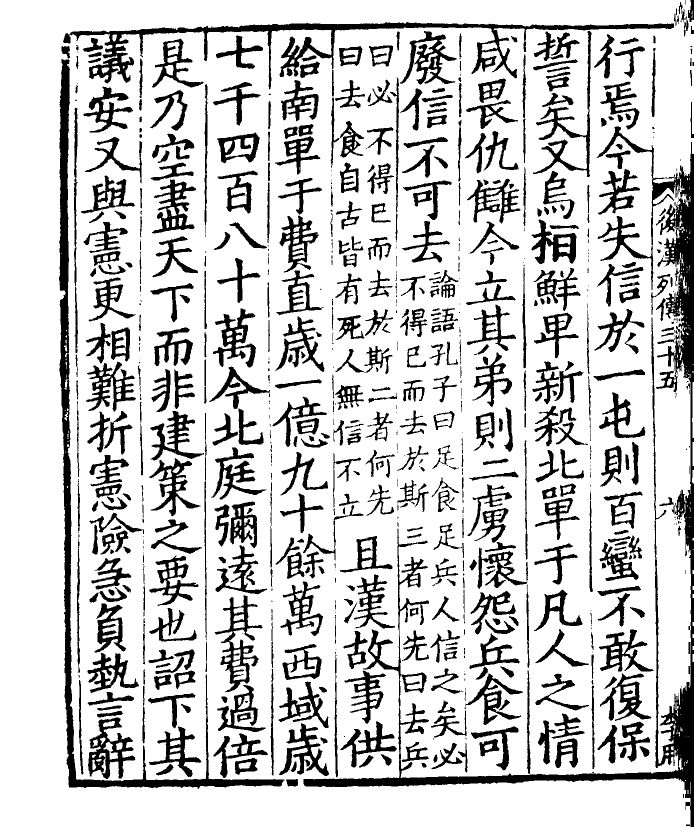 後漢列傳三十五
六
行焉今若失信於一屯則百蠻不敢復保
誓矣又烏桓鮮卑新殺北單于凡人之情
咸畏仇讎今立其弟則二虜懷怨兵食可
廢信不可去
論語孔子曰足食足兵人信之矣必
不得已而去於斯三者何先曰去兵
曰必不得已而去於斯二者何先
曰去食自古皆有死人無信不立
且漢故事供
給南單于費直歲一億九十餘萬西域歲
七千四百八十萬今北庭彌遠其費過倍
是乃空盡天下而非建策之要也詔下其
議安又與憲更相難折憲險急負埶言辭